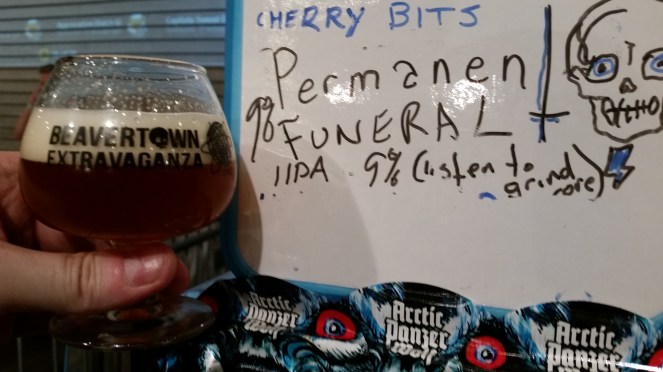 CHERRY BITS
Permanen
FUNERAL
IIPA 9% (listen to
grind
more)
9%
BEAVERTOWN
EXTRAVAGANZA
Arctic
Panzer
Wolf
Arctic
Panzer
Wolf
Arctic
Panzer
Wolf